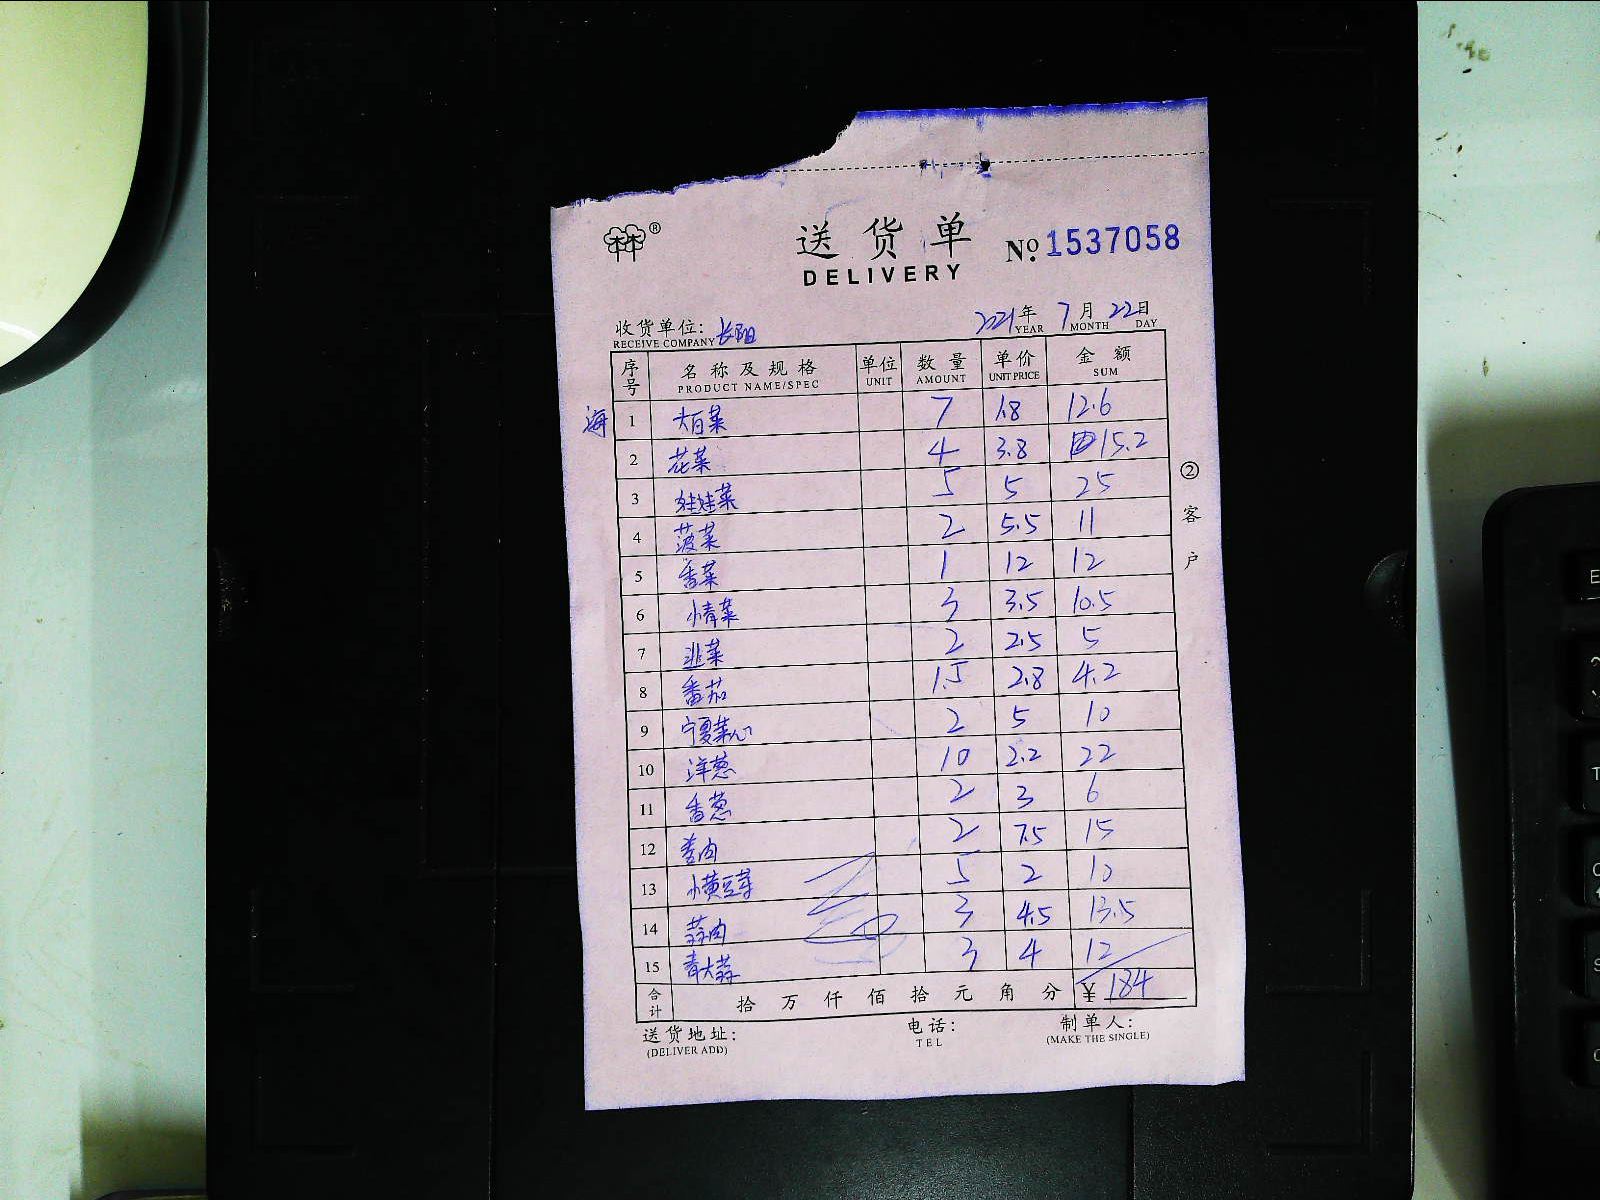 林®
送货单 № 1537058
DELIVERY
收货单位: 长阳 2021年 7月 22日
RECEIVE COMPANY YEAR MONTH DAY
序号 名称及规格 单位 数量 单价 金额
PRODUCT NAME/SPEC UNIT AMOUNT UNIT PRICE SUM
海 1 大白菜 7 1.8 12.6
2 花菜 4 3.8 15.2
3 娃娃菜 5 5 25
4 菠菜 2 5.5 11
5 香菜 1 12 12
6 小青菜 3 3.5 10.5
7 韭菜 2 2.5 5
8 番茄 1.5 2.8 4.2
9 宁夏菜心 2 5 10
10 洋葱 10 2.2 22
11 香葱 2 3 6
12 姜肉 2 7.5 15
13 小黄豆芽 5 2 10
14 蒜肉 3 4.5 13.5
15 青大蒜 3 4 12
合计 拾万仟佰拾元角分 ¥ 184
送货地址: 电话: 制单人:
(DELIVER ADD) TEL (MAKE THE SINGLE)
②客户
E
T